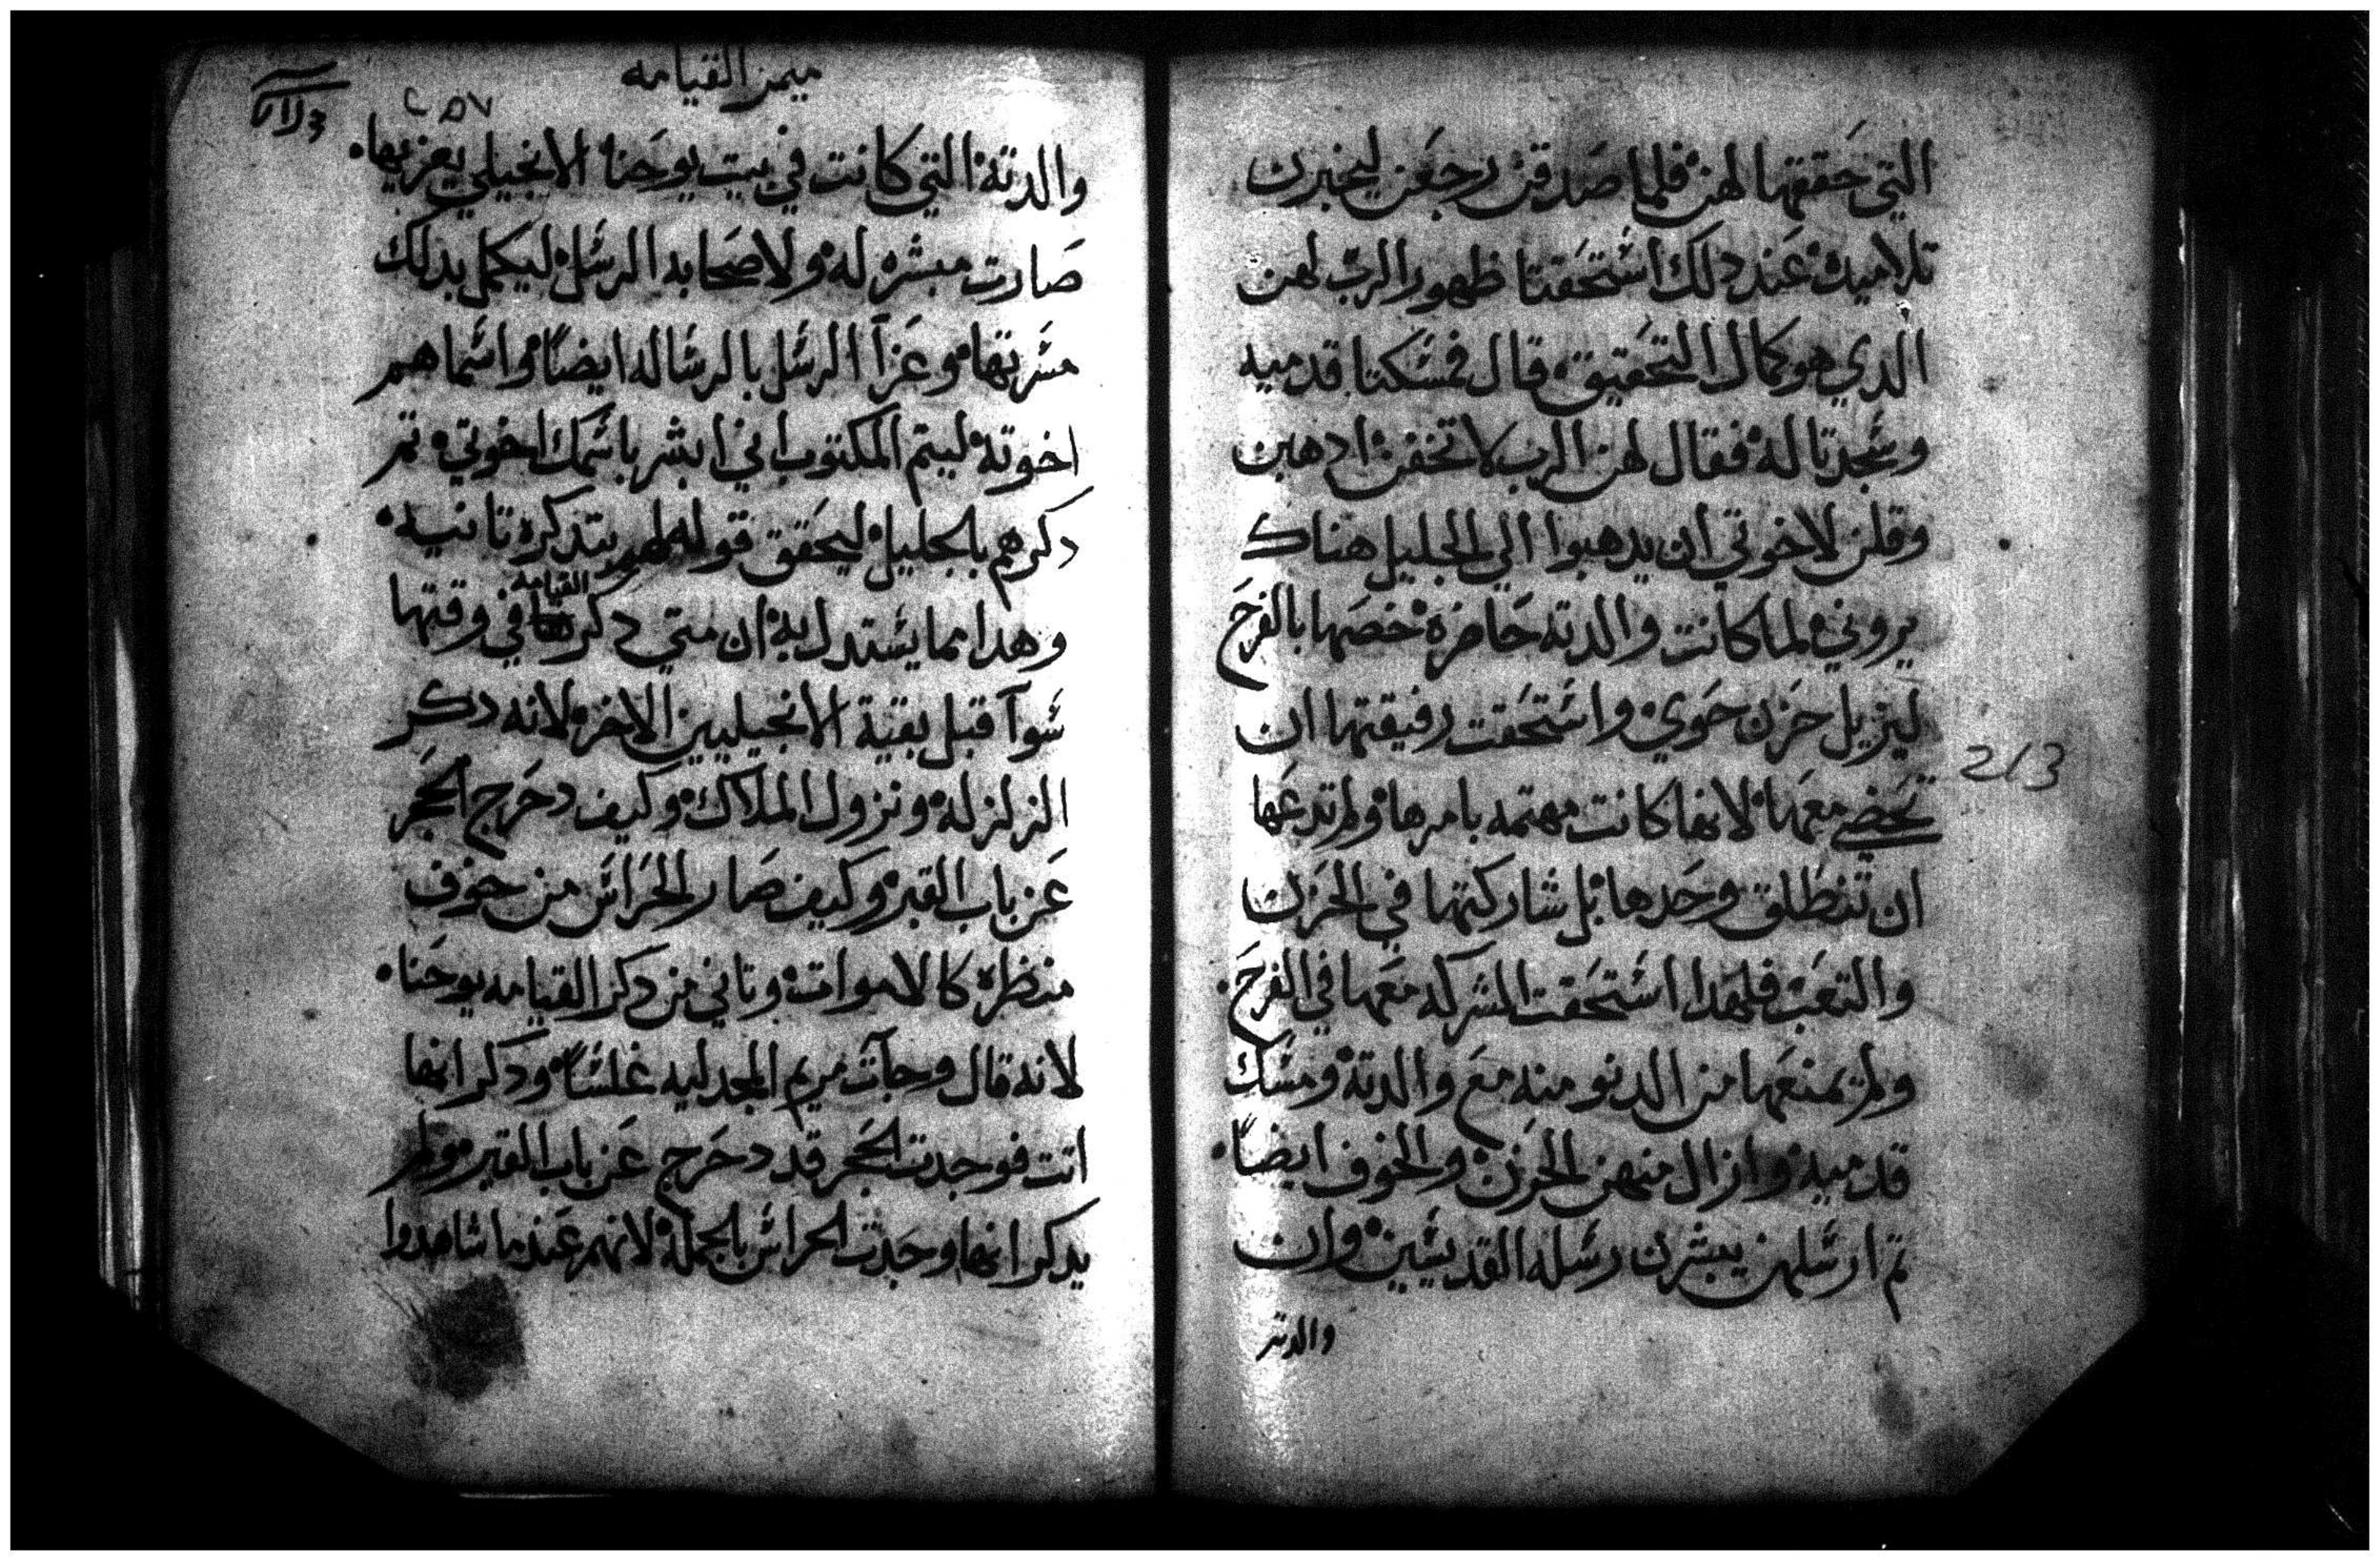 التي حققتها لهن فلما صدقن رجعن ليخبرن
تلاميذه عند دلك استحقتا ظهور الرب لهن
الدي هو كمال التحقيق قال فمسكتا قدميه
وسجدتا له فقال لهن الرب لا تخفن ادهبن
وقلن لاخوتي ان يدهبوا الي الجليل هناك
يروني لما كانت والدته حاضره خصها بالفرح
ليزيل حزن حوي واستحقت رفيقتها ان
تحضي معها لانها كانت مهتمه بامرها ولم تدعها
213
ان تنطلق وحدها بل شاركتها في الحزن
والتعب فلهدا استحقت المشركه معها في الفرح
ولم يمنعها من الدنو منه مع والدته ومسك
قدميه وازال منهن الحزن والخوف ايضاً
تم ارسلهن يبشرن رسله القديسين وان
والدته
ميمر القيامه
٢٥٧
والدته التي كانت في بيت يوحنا الانجيلي يعزيها
صارت مبشره له ولاصحابه الرسل ليكمل بدلك
مسرتها وعزآ الرسل بالرساله ايضاً واسماهم
اخوته ليتم المكتوب اني ابشر باسمك اخوتي تم
دكرهم بالجليل ليحقق قوله لهم بتدكره تانيه
القيامه
وهدا مما يستدل به ان متي دكر في وقتها
سوآ قبل بقية الانجيليين الاخر لانه دكر
الزلزله ونزول الملاك وكيف دحرج الحجر
عن باب القبر وكيف صار الحراس من خوف
منظره كالاموات وتاني من دكر القيامه يوحنا
لانه قال وجآت مريم المجدليه غلساً ودكر انها
اتت فوجدت الحجر قد دحرج عن باب القبر ولم
يدكر انها وجدت الحراس بالجمله لانهم عندما شاهدوا